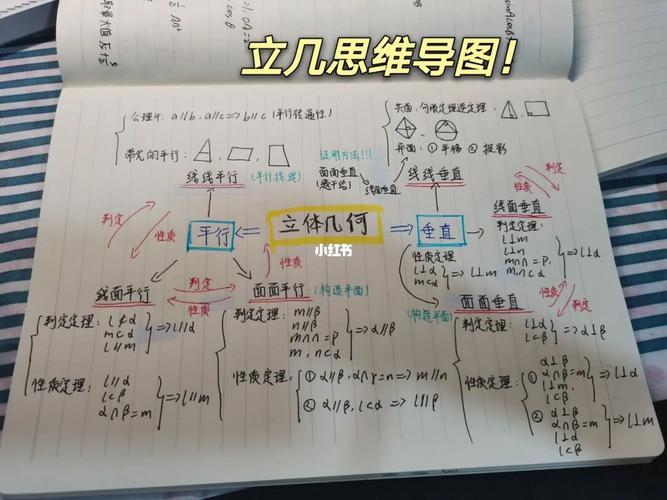 立几思维导图!
公理4: a∥b, a∥c=>b∥c (平行传递性)
常见的平行:
线线平行
(平行找线)
共面: 勾股定理逆定理、
异面: ① 平移 ② 投影
证明方法!!!
面面垂直
线面垂直
线线垂直
判定
性质
平行
立体几何
小红书
垂直
判定
性质
线面垂直
判定定理:
l⊥m
l⊥n
m∩n=P,
m,n⊂α
=>l⊥α
性质定理:
l⊥α
m⊂α
=>l⊥m
线面平行
判定
性质
面面平行
(构造平面)
判定
性质
面面垂直
(构造平面)
判定
性质
判定定理:
l⊄α
m⊂α
l∥m
=>l∥α
性质定理:
l∥α
l⊂β
α∩β=m
=>l∥m
判定定理:
m∥β
n∥β
m∩n=P
m,n⊂α
=>α∥β
性质定理:
① α∥β, α∩γ=n=>m∥n
② α∥β, l⊂α => l∥β
判定定理:
l⊥α
l⊂β
=>α⊥β
性质定理:
① α⊥β
α∩β=m
l⊥m,
l⊂β
=>l⊥α
② α⊥β
α∩β=m
l⊥α
l⊂β
=>l⊥m